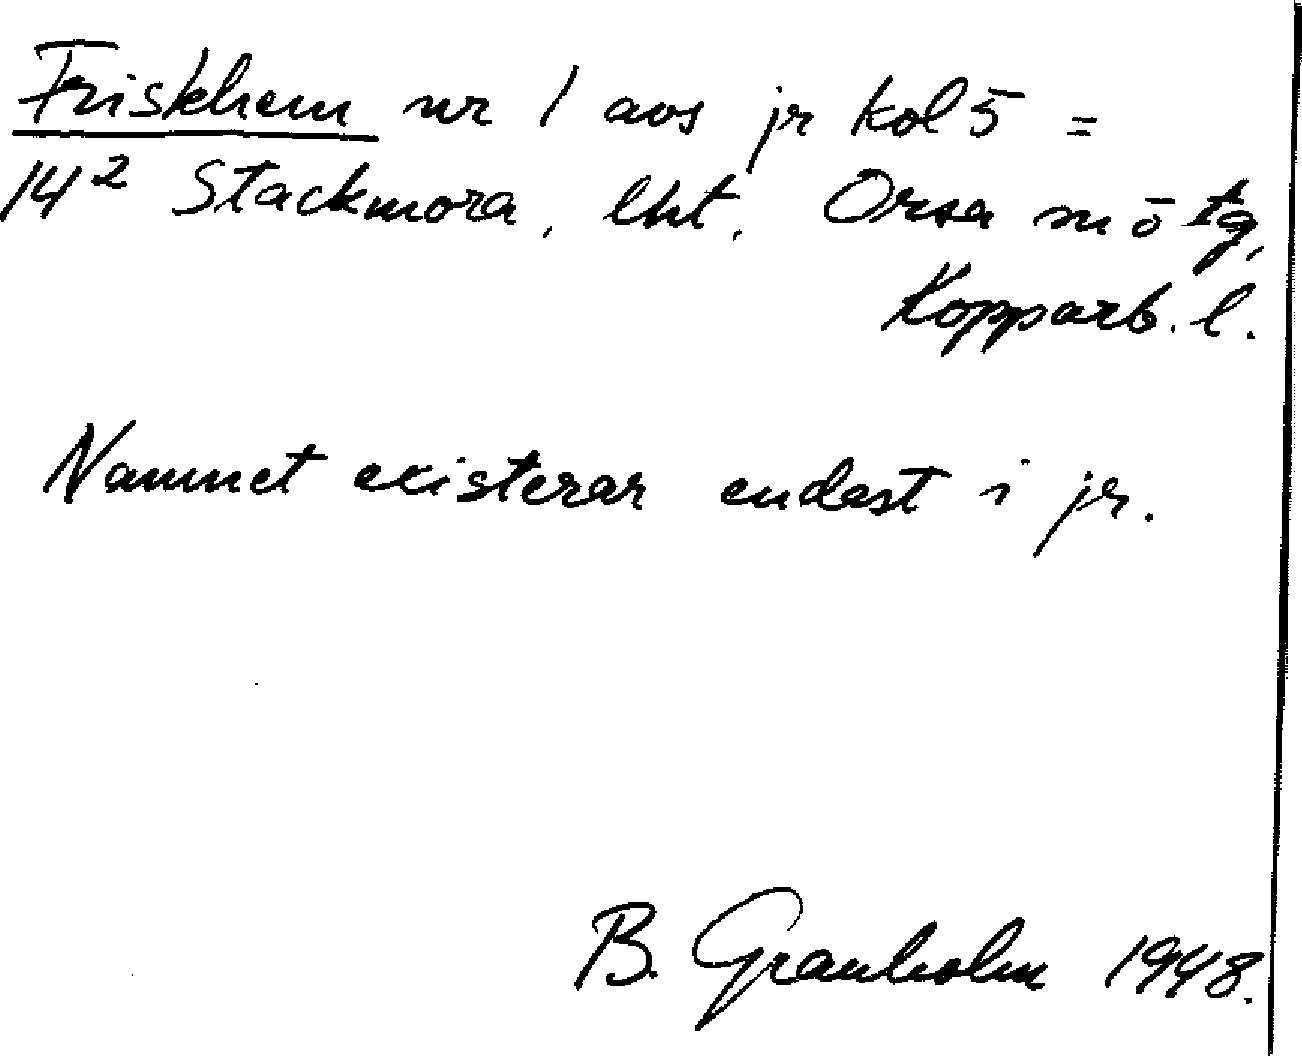 Friskhem nr 1 avs jr kol 5 =
14² Stackmora, lht. Orsa sn ö tg,
Kopparb. l.
Namnet existerar endast i jr.
B. Granholm 1948.